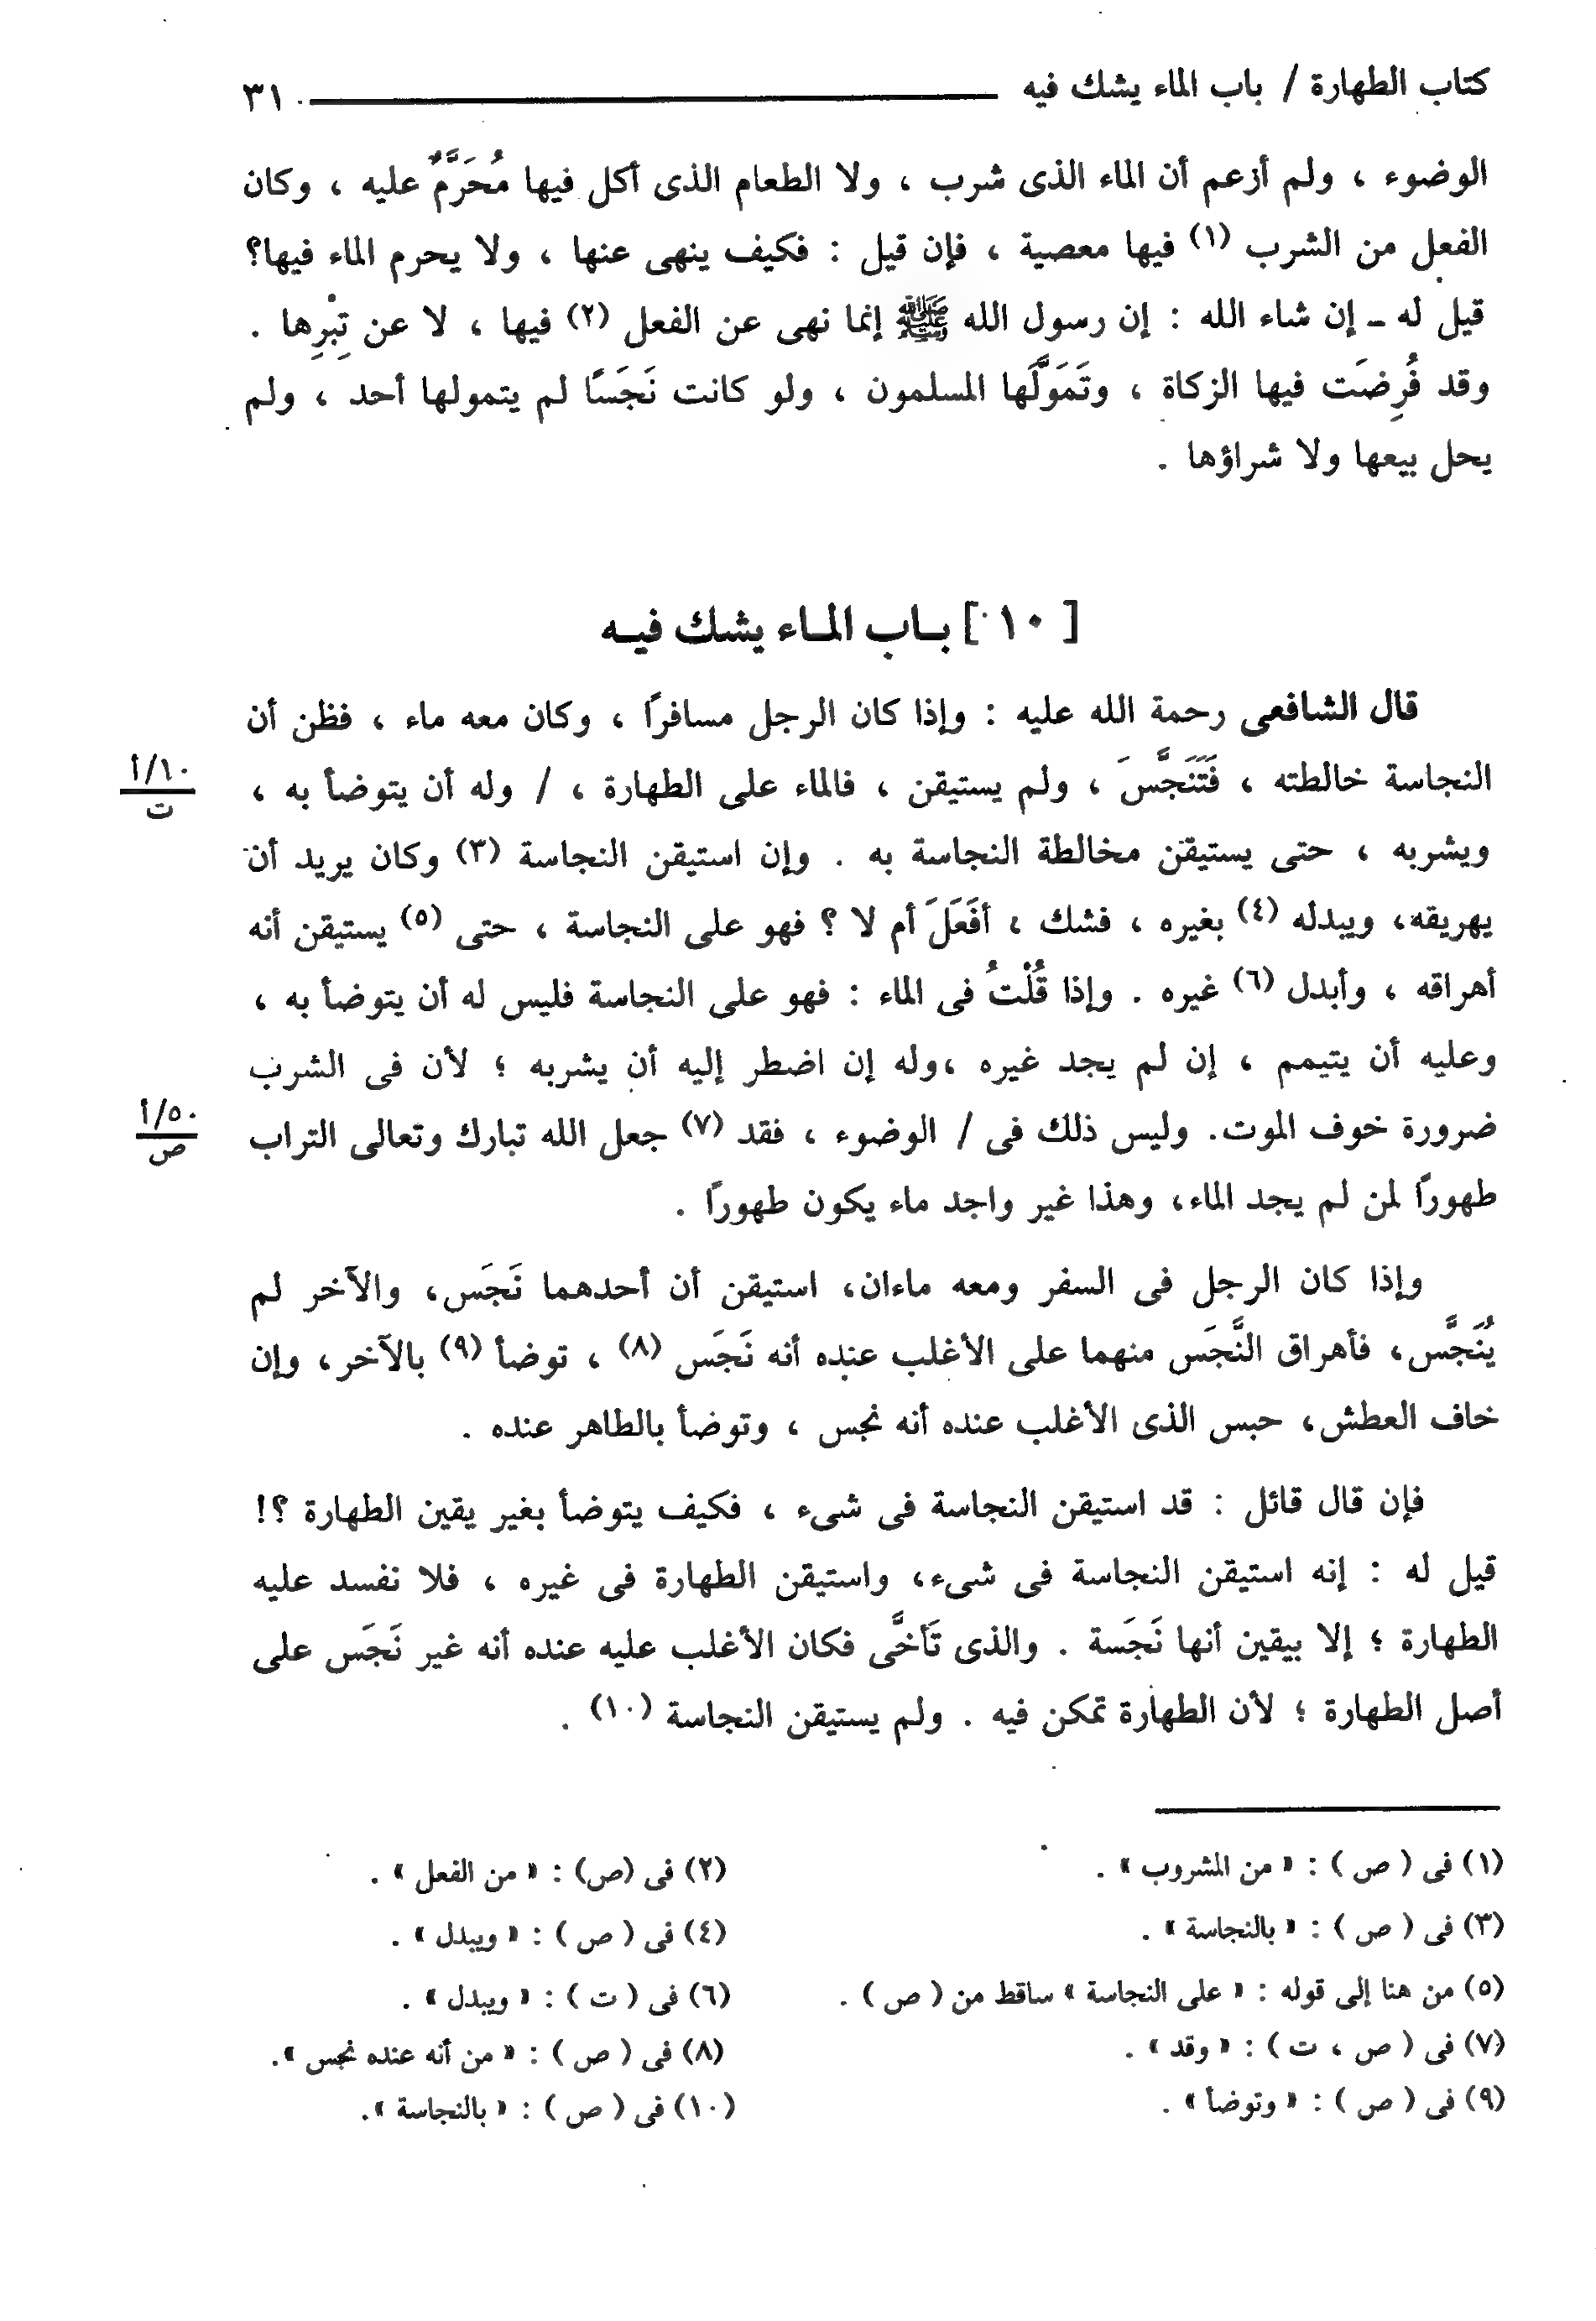 كتاب الطهارة / باب الماء يشك فيه ٣١
الوضوء ، ولم أزعم أن الماء الذى شرب ، ولا الطعام الذى أكل فيها مُحَرَّمٌ عليه ، وكان
الفعل من الشرب (١) فيها معصية ، فإن قيل : فكيف ينهى عنها ، ولا يحرم الماء فيها؟
قيل له ـ إن شاء الله : إن رسول الله ﷺ إنما نهى عن الفعل (٢) فيها ، لا عن تِبْرِها .
وقد فُرِضَت فيها الزكاة ، وتَمَوَّلَها المسلمون ، ولو كانت نَجَسًا لم يتمولها أحد ، ولم
يحل بيعها ولا شراؤها .
[ ١٠ ] بـاب المـاء يشك فيـه
قال الشافعى رحمة الله عليه : وإذا كان الرجل مسافرًا ، وكان معه ماء ، فظن أن
النجاسة خالطته ، فَتَنَجَّسَ ، ولم يستيقن ، فالماء على الطهارة ، / وله أن يتوضأ به ،
١٠/أ
ت
ويشربه ، حتى يستيقن مخالطة النجاسة به . وإن استيقن النجاسة (٣) وكان يريد أن
يهريقه، ويبدله (٤) بغيره ، فشك ، أفَعَلَ أم لا ؟ فهو على النجاسة ، حتى (٥) يستيقن أنه
أهراقه ، وأبدل (٦) غيره . وإذا قُلْتُ فى الماء : فهو على النجاسة فليس له أن يتوضأ به ،
وعليه أن يتيمم ، إن لم يجد غيره ،وله إن اضطر إليه أن يشربه ؛ لأن فى الشرب
ضرورة خوف الموت. وليس ذلك فى / الوضوء ، فقد (٧) جعل الله تبارك وتعالى التراب
٥٠/أ
ص
طهورًا لمن لم يجد الماء، وهذا غير واجد ماء يكون طهورًا .
وإذا كان الرجل فى السفر ومعه ماءان، استيقن أن أحدهما نَجَس، والآخر لم
يُنَجَّس، فأهراق النَّجَس منهما على الأغلب عنده أنه نَجَس (٨) ، توضأ (٩) بالآخر، وإن
خاف العطش، حبس الذى الأغلب عنده أنه نجس ، وتوضأ بالطاهر عنده .
فإن قال قائل : قد استيقن النجاسة فى شىء ، فكيف يتوضأ بغير يقين الطهارة ؟!
قيل له : إنه استيقن النجاسة فى شىء، واستيقن الطهارة فى غيره ، فلا نفسد عليه
الطهارة ؛ إلا بيقين أنها نَجَسة . والذى تَأَخَّى فكان الأغلب عليه عنده أنه غير نَجَس على
أصل الطهارة ؛ لأن الطهارة تمكن فيه . ولم يستيقن النجاسة (١٠) .
(١) فى ( ص ) : « من المشروب » .
(٢) فى (ص) : « من الفعل » .
(٣) فى ( ص ) : « بالنجاسة » .
(٤) فى ( ص ) : « ويبدل » .
(٥) من هنا إلى قوله : « على النجاسة » ساقط من ( ص ) .
(٦) فى ( ت ) : « ويبدل » .
(٧) فى ( ص ، ت ) : « وقد » .
(٨) فى ( ص ) : « من أنه عنده نجس ».
(٩) فى ( ص ) : « وتوضأ » .
(١٠) فى ( ص ) : « بالنجاسة ».